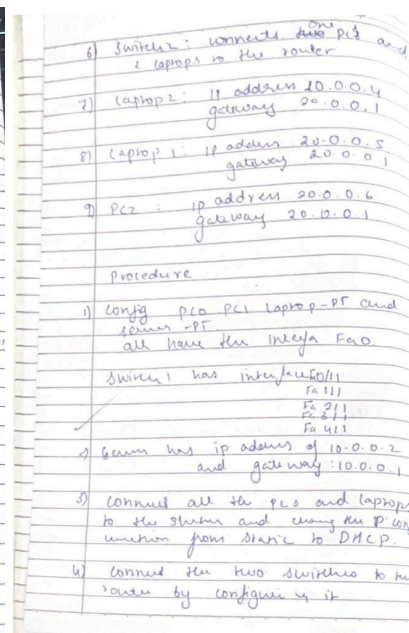 one
6) Switch 2 : connects two PCs and
2 laptops to the router
7) Laptop 2 : ip address 20.0.0.4
gateway 20.0.0.1
8) Laptop 1 : ip address 20.0.0.5
gateway 20.0.0.1
9) PC2 : ip address 20.0.0.6
gateway 20.0.0.1
Procedure
1) Config PC0 PC1 Laptop-PT and
server-PT.
all have the interface Fa0
Switch 1 has interface Fa0/1
Fa 1/1
Fa 2/1
Fa 3/1
Fa 4/1
2) Server has ip address of 10.0.0.2
and gateway : 10.0.0.1
3) Connect all the PCs and laptops
to the and change the IP
from static to DHCP.
4) Connect the two switches to the
router by configuring it